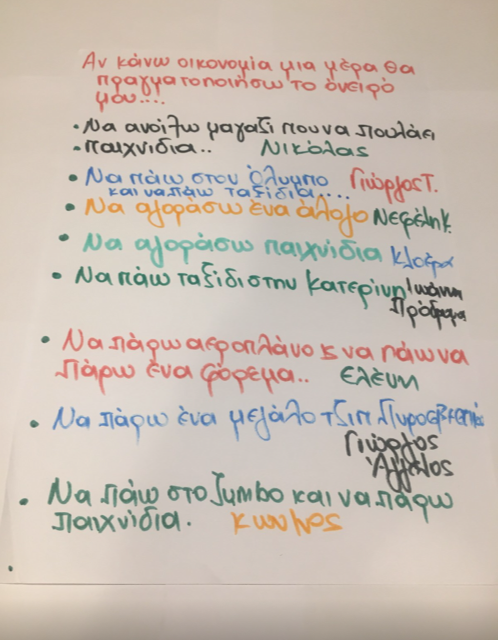 Αν κάνω οικονομία μια μέρα θα
πραγματοποιήσω το όνειρό
μου....
• Να ανοίξω μαγαζί που να πουλάει
• παιχνίδια.. Νικόλας
• Να πάω στον Όλυμπο Γιώργος Τ.
και να πάω ταξίδια....
• Να αγοράσω ένα άλογο Νεφέλη Κ.
• Να αγοράσω παιχνίδια
• Να πάω ταξίδι στην Κατερίνη Ιωάννα
• Να πάρω αεροπλάνο & να πάω να
πάρω ένα φόρεμα.. Ελένη
• Να πάρω ένα μεγάλο τζιπ
Γιώργος
Άγγελος
• Να πάω στο Jumbo και να πάρω
παιχνίδια.